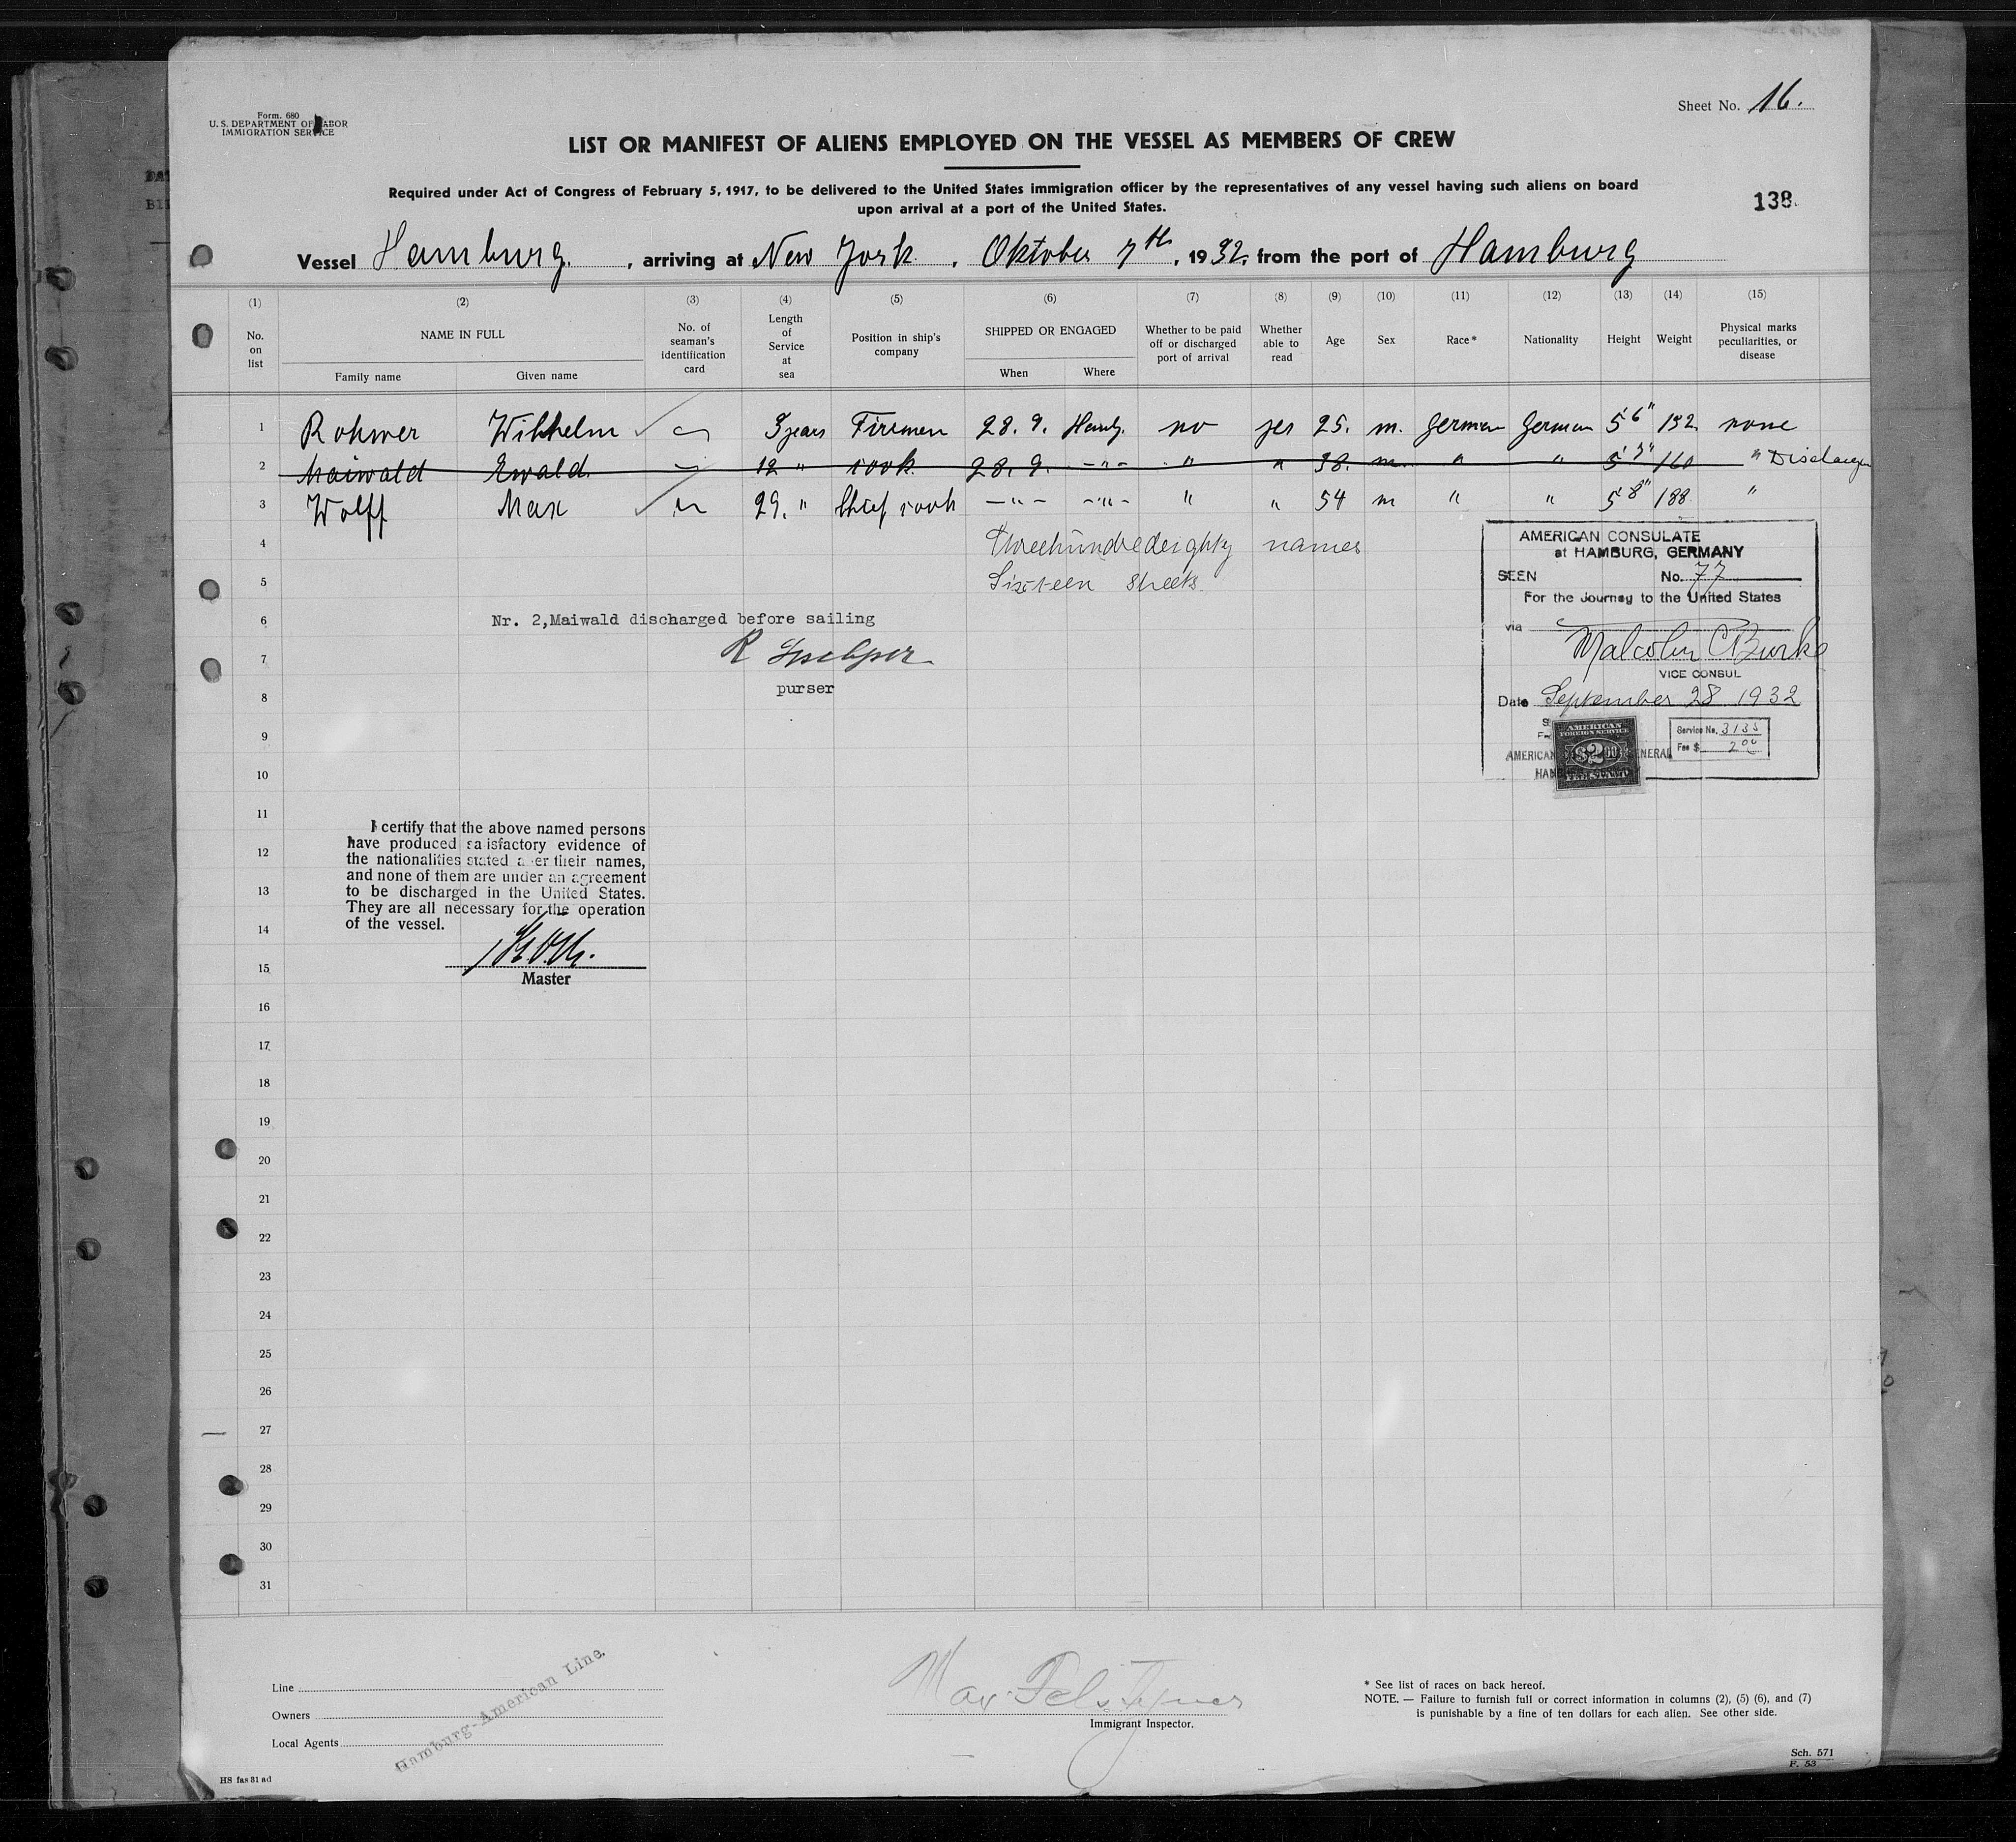 Form. 680
U. S. DEPARTMENT OF LABOR
IMMIGRATION SERVICE
Sheet No. 16.
LIST OR MANIFEST OF ALIENS EMPLOYED ON THE VESSEL AS MEMBERS OF CREW
Required under Act of Congress of February 5, 1917, to be delivered to the United States immigration officer by the representatives of any vessel having such aliens on board
upon arrival at a port of the United States.
138.
Vessel Hamburg, arriving at New York, Oktober 7th, 1932, from the port of Hamburg
(1) (2) (3) (4) (5) (6) (7) (8) (9) (10) (11) (12) (13) (14) (15)
No. on list
NAME IN FULL
Family name Given name
No. of seaman's identification card
Length of Service at sea
Position in ship's company
SHIPPED OR ENGAGED
When Where
Whether to be paid off or discharged port of arrival
Whether able to read
Age
Sex
Race*
Nationality
Height
Weight
Physical marks peculiarities, or disease
1 Rohwer Wilhelm 3 years Firemen 28. 9. Hambg. no yes 25. m. german german 5'6" 132. none
2 Maiwald Ewald. 12 " cook. 28. 9. -"- " " 38. m. " " 5'3" 160 "
3 Wolff Max 29. " Chief cook -"- -"- " " 54 m " " 5'8" 188 "
4 threehundredeighty names
5 Sixteen sheets.
6 Nr. 2,Maiwald discharged before sailing
7 R
8 purser
9
10
11
12
13
14
15
16
17
18
19
20
21
22
23
24
25
26
27
28
29
30
31
AMERICAN CONSULATE
at HAMBURG, GERMANY
SEEN No. 77
For the Journey to the United States
via
Malcolm C Burke
VICE CONSUL
Date September 28 1932
AMERICAN
FOREIGN SERVICE
$2.00
FEE STAMP
Service No. 3135
Fee $ 2.00
AMERICAN GENERAL
I certify that the above named persons
have produced satisfactory evidence of
the nationalities stated after their names,
and none of them are under an agreement
to be discharged in the United States.
They are all necessary for the operation
of the vessel.
Master
Line
Owners
Local Agents
Hamburg-American Line.
Immigrant Inspector.
* See list of races on back hereof.
NOTE. — Failure to furnish full or correct information in columns (2), (5) (6), and (7)
is punishable by a fine of ten dollars for each alien. See other side.
HS fas 31 ad
Sch. 571
F. 53